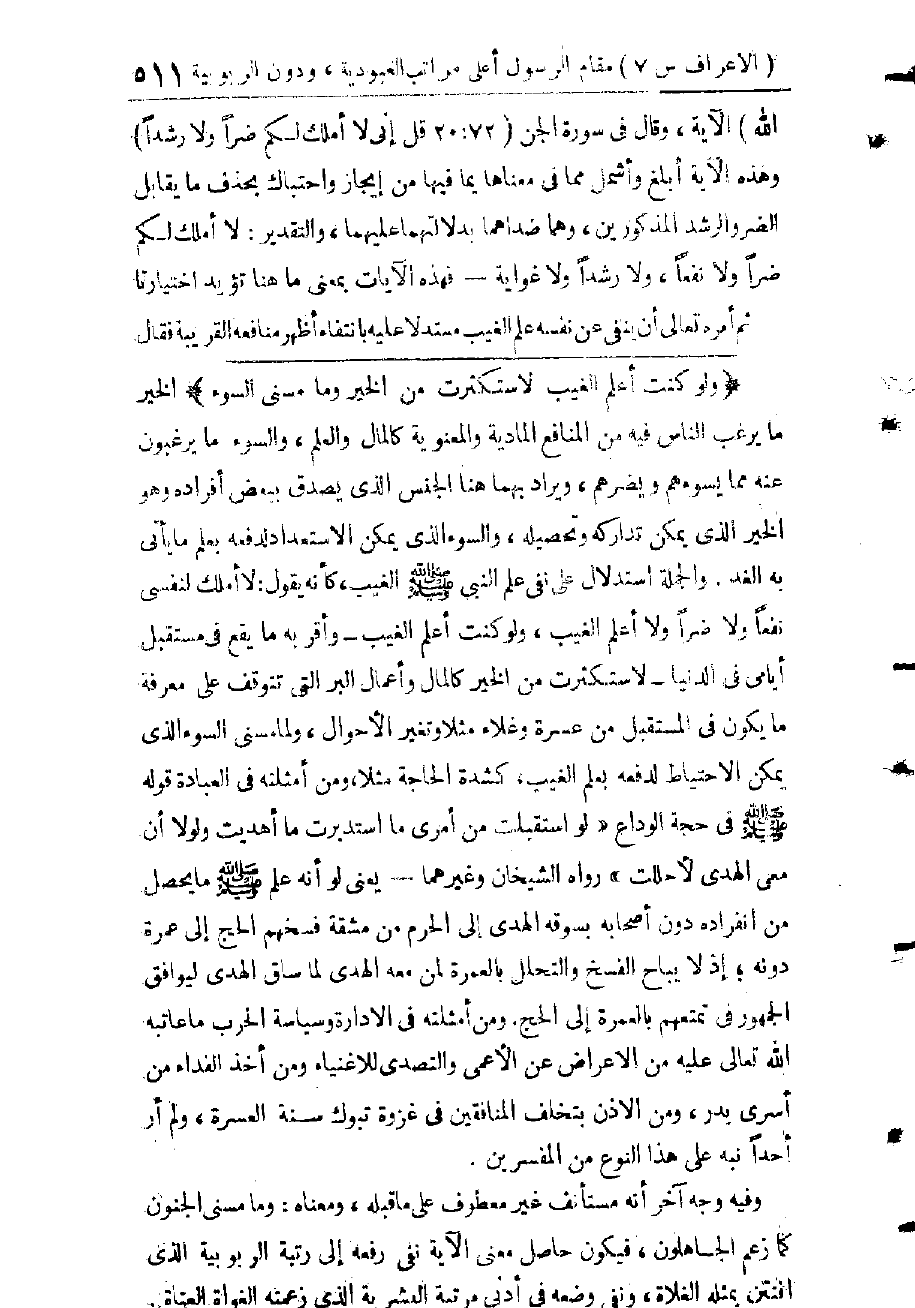 ( الاعراف س ٧ ) مقام الرسول أعلى مراتب العبودية ، ودون الربوبية ٥١١
الله ) الآية ، وقال فى سورة الجن ( ٢٠:٧٢ قل إنى لا أملك لكم ضراً ولا رشداً )
وهذه الآية أبلغ وأشمل مما فى معناها بما فيها من إيجاز واحتباك بحذف ما يقابل
الضر والرشد المذكورين ، وهما ضداهما بدلالتهما عليهما ، والتقدير : لا أملك لكم
ضراً ولا نفعاً ، ولا رشداً ولا غواية — فهذه الآيات بمعنى ما هنا تؤيد اختيارنا
ثم أمره تعالى أن ينفى عن نفسه علم الغيب مستدلا عليه بانتفاء أظهر منافعه القريبة فقال
﴿ ولو كنت أعلم الغيب لاستكثرت من الخير وما مسنى السوء ﴾ الخير
ما يرغب الناس فيه من المنافع المادية والمعنوية كالمال والعلم ، والسوء ما يرغبون
عنه مما يسوءهم ويضرهم ، ويراد بهما هنا الجنس الذى يصدق ببعض أفراده وهو
الخير الذى يمكن تداركه وتحصيله ، والسوء الذى يمكن الاستعداد لدفعه بعلم ما يأتى
به الغد . والجملة استدلال على نفى علم النبى ﷺ الغيب ، كأنه يقول : لا أملك لنفسى
نفعاً ولا ضراً ولا أعلم الغيب ، ولو كنت أعلم الغيب ــ وأقر به ما يقع فى مستقبل
أيامى فى الدنيا ــ لاستكثرت من الخير كالمال وأعمال البر التى تتوقف على معرفة
ما يكون فى المستقبل من عسرة وغلاء مثلا وتغير الأحوال ، ولما مسنى السوء الذى
يمكن الاحتياط لدفعه بعلم الغيب ، كشدة الحاجة مثلا ، ومن أمثلته فى العبادة قوله
ﷺ فى حجة الوداع « لو استقبلت من أمرى ما استدبرت ما أهديت ولولا أن
معى الهدى لأحللت » رواه الشيخان وغيرهما — يعنى لو أنه علم ﷺ ما يحصل
من انفراده دون أصحابه بسوقه الهدى إلى الحرم من مشقة فسخهم الحج إلى عمرة
دونه ؛ إذ لا يباح الفسخ والتحلل بالعمرة لمن معه الهدى لما ساق الهدى ليوافق
الجمهور فى تمتعهم بالعمرة إلى الحج . ومن أمثلته فى الادارة وسياسة الحرب ما عاتبه
الله تعالى عليه من الاعراض عن الأعمى والتصدى للاغنياء ومن أخذ الفداء من
أسرى بدر ، ومن الاذن بتخلف المنافقين فى غزوة تبوك سنة العسرة ، ولم أر
أحداً نبه على هذا النوع من المفسرين .
وفيه وجه آخر أنه مستأنف غير معطوف على ما قبله ، ومعناه : وما مسنى الجنون
كما زعم الجاهلون ، فيكون حاصل معنى الآية نفى رفعه إلى رتبة الربوبية الذى
افتتن بمثله الغلاة ، ونفى وضعه فى أدنى مرتبة البشرية الذى زعمته الغواة العتاة .